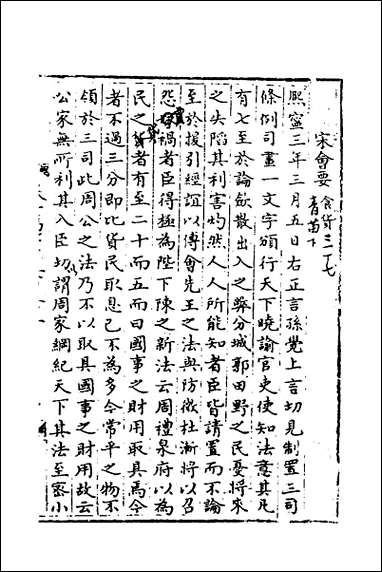 宋會要 食貨三十七
青苗下
熙寧三年三月五日右正言孫覺上言切見制置三司
條例司畫一文字頒行天下曉諭官吏使知法意其凡
有七至於論歛散出入之弊分城郭田野之民憂將來
之失陷其利害灼然人人所能知者臣皆請置而不論
至於援引經誼以傅會先王之法與防微杜漸將以召
怨賈禍者臣得極為陛下陳之新法云周禮泉府以為
民之貸者有至二十而五而曰國事之財用取具焉今
者不過三分即比貸民取息已不為多今常平之物不
領於三司此周公之法乃不以取具國事之財用故云
公家無所利其入臣切謂周家綱紀天下其法至密小